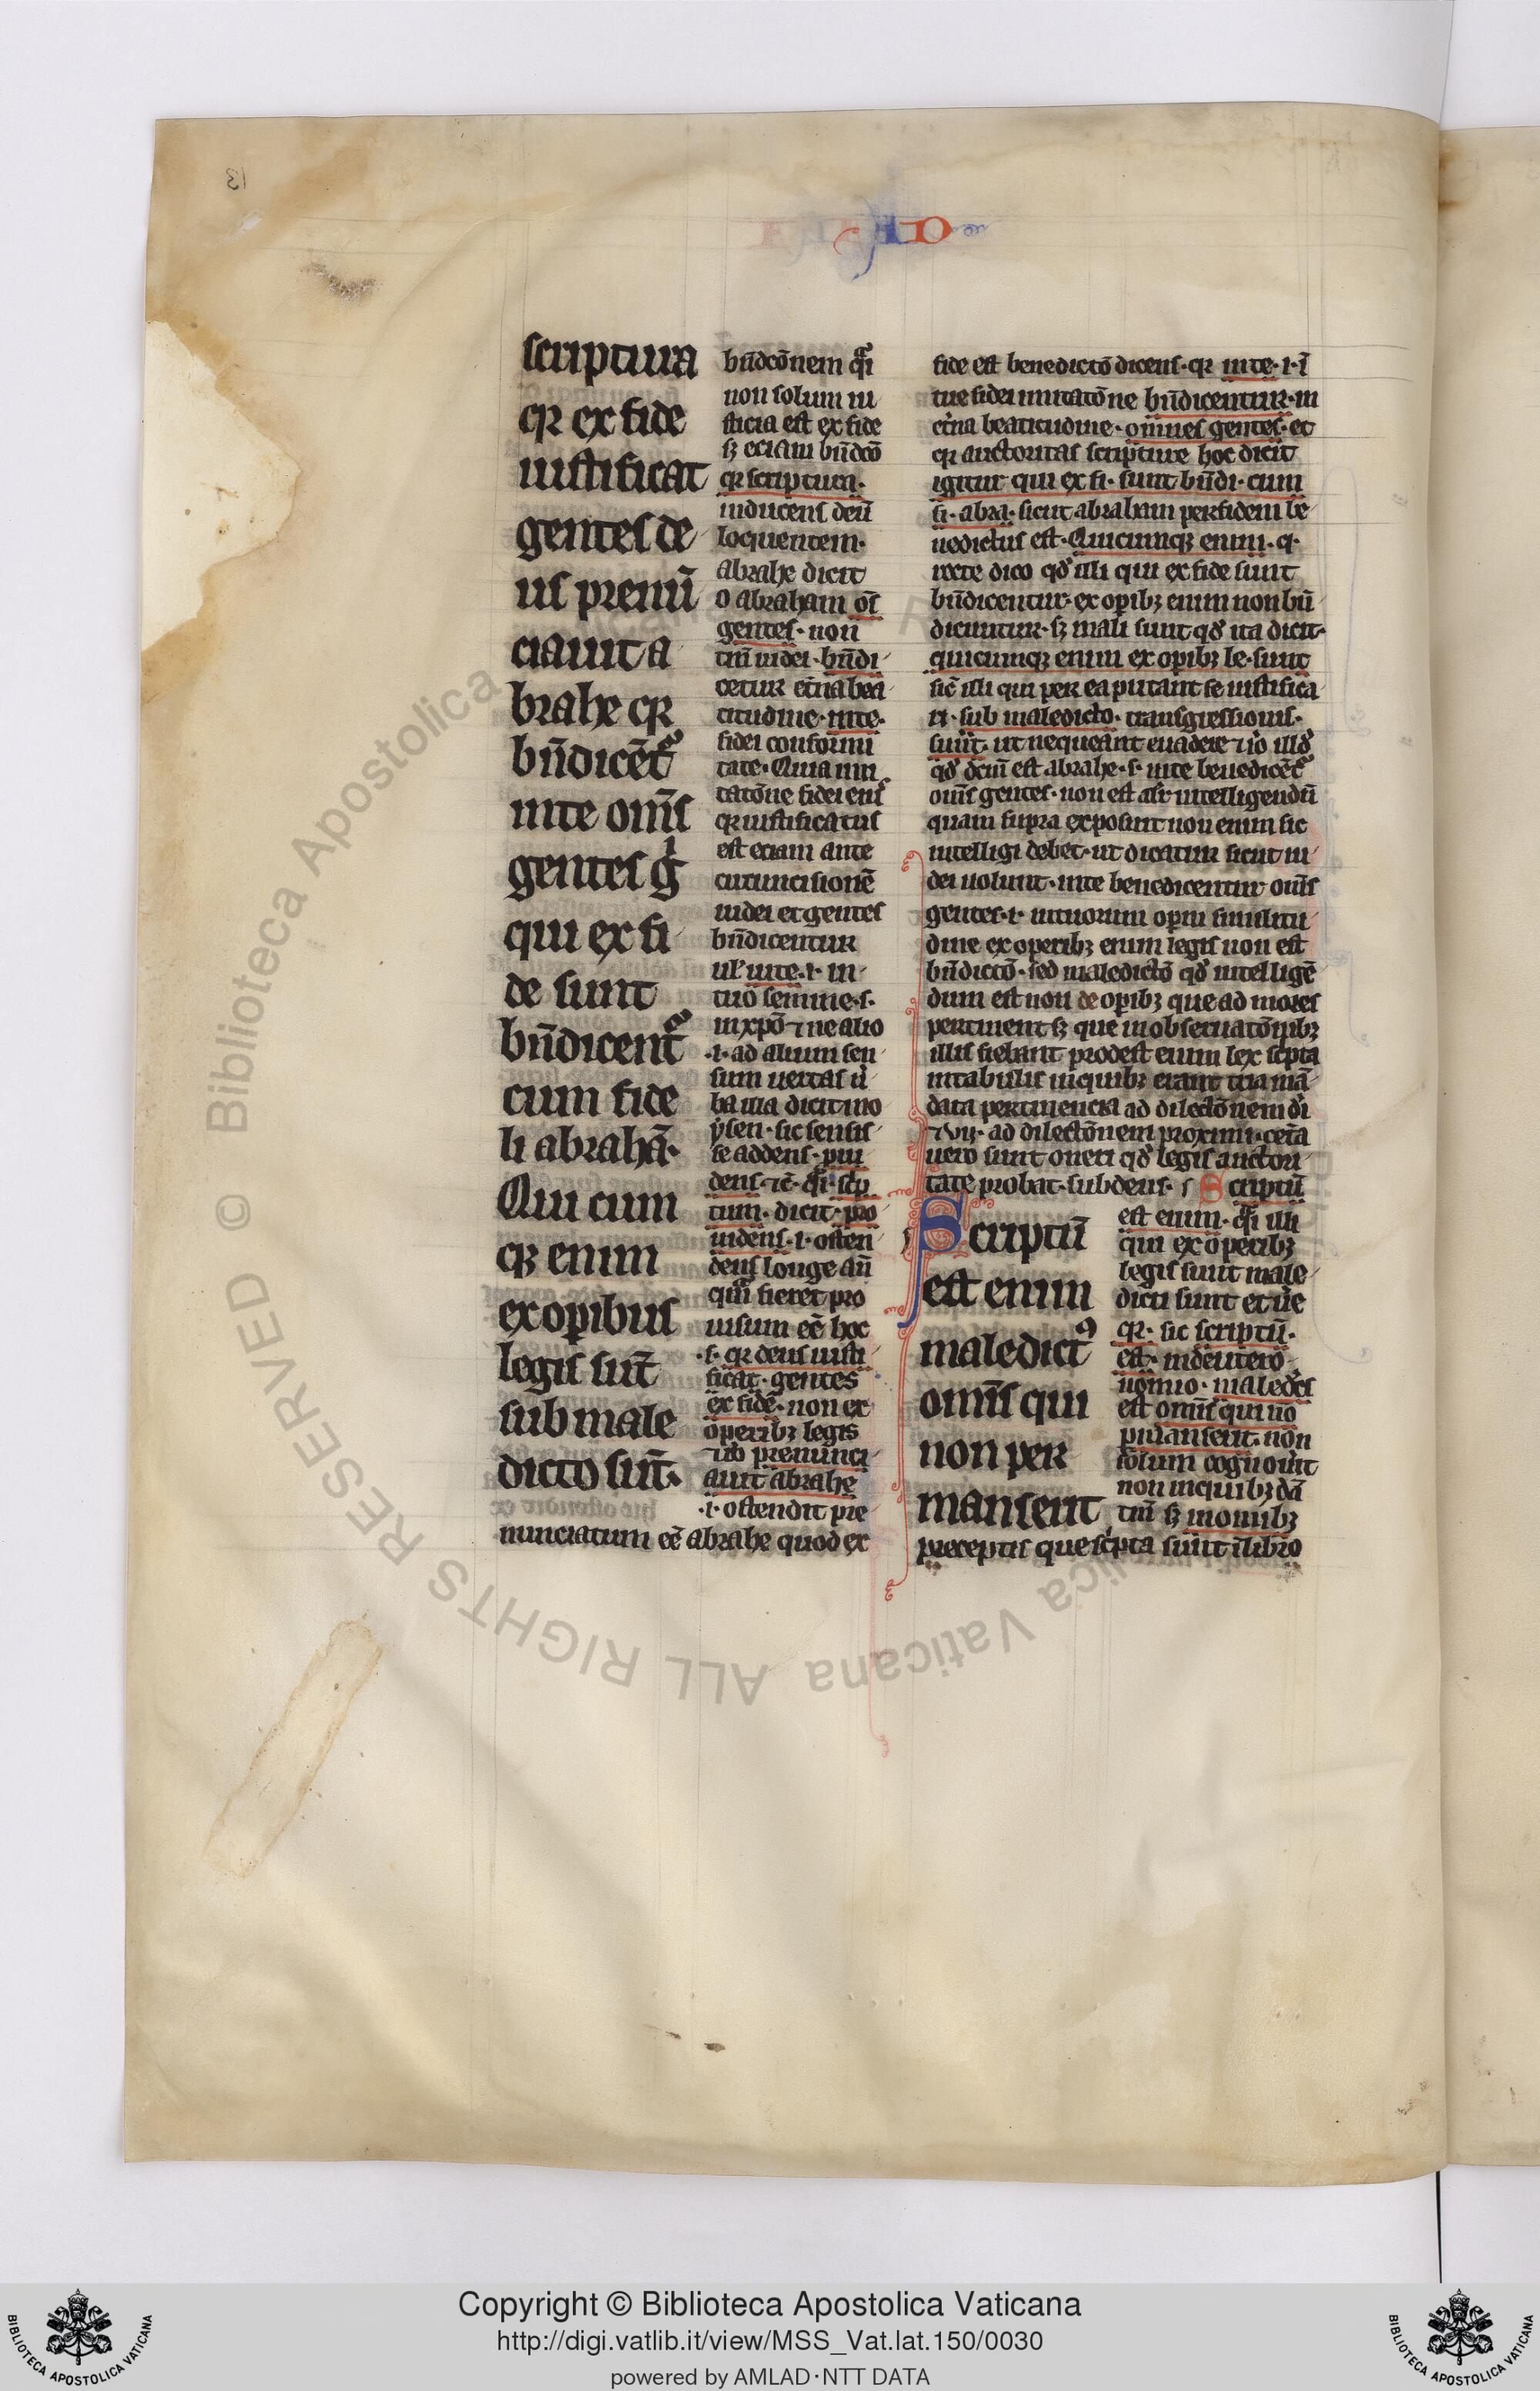 AD
scriptura
qr ex fide
iustificat
gentes de
us prenū
ciauit a
brahe qr
bn̄dicēt᷑
in te om̄s
gentes gͥ
qui ex fi
de sunt
bn̄dicent᷑
cum fide
li abrahā.
Qui cum
qꝫ enim
ex oꝑibus
legis sūt
sub male
dicto sūt.
bn̄dcōnem q̄i
non solum iu
sticia est ex fide
sꝫ eciam bn̄dcō
qr scriptura.
inducens deū
loquentem.
abrahe dicit
o abraham om̄s
gentes. non
tm̄ iudei. bn̄di
cetur et̄na bea
titudine. in te.
fidei conformi
tate. Quia imi
tatōne fidei eius
qr iustificatus
est eciam ante
circuncisionē
iudei et gentes
bn̄dicentur
ul' in te. i. in
tuo semine. s.
in xpō ⁊ ne alio
.i. ad alium sen
sum uertas ū
ba illa dicit mo
ysen. sic sensis
se addens. ꝓui
dens. ⁊c̄. q̄i. sc̄p
tum. dicit. pro
uidens. i. osten
dens longe an̄
qm̄ fieret pro
uisum eē hoc
.s. qr deus iusti
ficat. gentes
ex fide. non ex
operibꝫ legis
⁊ iō prenunci
auit abrahe
.i. ostendit pre
nunciatum eē abrahe quod ex
fide est benedictō dicens. qr in te. i. ī
tue fidei imitatōne bn̄dicentur. in
et̄na beatitudine. omnes gentes. et
qr auctoritas scripture hoc dicit
igitur qui ex fi. sunt bn̄di. cum
fi. abra. sicut abraham per fidem be
nedictus est. Quicumqꝫ enim. q.
recte dico qd̕ illi qui ex fide sunt
bn̄dicentur. ex oꝑibꝫ enim non bn̄
dicuntur. sꝫ mali sunt qd̕ ita dicit.
quicumqꝫ enim ex oꝑibꝫ le. sunt
sic̄ illi qui per ea putant se iustifica
ri. sub maledicto. transgressionis.
sunt. ut nequeant euadere ⁊ iō illd̕
qd̕ dcm̄ est abrahe. s. in te benedicēt᷑
om̄s gentes. non est alr̄ intelligendū
quam supra exposuit non enim sic
intelligi debet. ut dicatur sicut iu
dei uolunt. in te benedicentur om̄s
gentes. i. in tuorum oꝑum similitu
dine ex operibꝫ enim legis non est
bn̄dictō. sed maledictō qd̕ intelligē
dum est non de oꝑibꝫ que ad mores
pertinent sꝫ que in obseruatōnibꝫ
illis fiebant prodest enim lex sc̄pta
in tabulis in quibꝫ erant tria mā
data pertinencia ad dilectōnem dī
⁊ vii. ad dilectōnem proximi. cet̄a
uero sunt oneri qd̕ legis auctori
tate probat. subdens. Scriptū
Scriptū
est enim
maledictꝰ
om̄is qui
non per
manserit
est enim. q̄i illi
qui ex operibꝫ
legis sunt male
dicti sunt et ūe
qr. sic scriptū.
est. in deutero
nomio. maleds̄
est om̄is qui nō
ꝑmanserit. non
solum cognouit
non in quibꝫ dā
tm̄ sꝫ in omnibꝫ
preceptis que sc̄pta sunt ī libro
Biblioteca Apostolica Vaticana ALL RIGHTS RESERVED ©
Copyright © Biblioteca Apostolica Vaticana
http://digi.vatlib.it/view/MSS_Vat.lat.150/0030
powered by AMLAD·NTT DATA
BIBLIOTECA APOSTOLICA VATICANA
BIBLIOTECA APOSTOLICA VATICANA